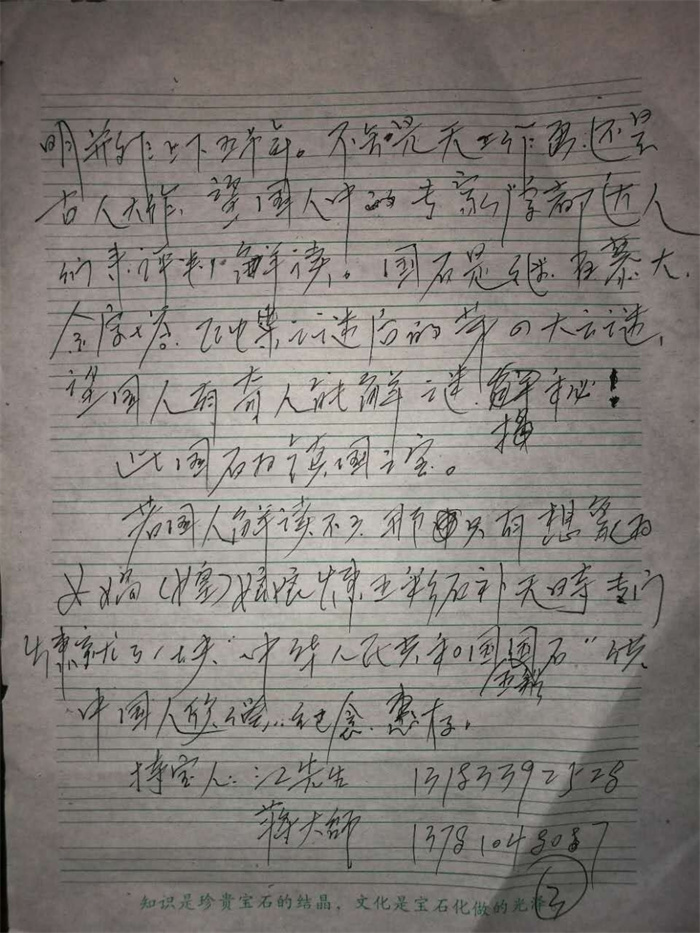 明并作上下五千年。不知是天工作画,还是
古人大作,望国人中的专家、学者、达人
们来评判和解读。国石是继百慕大,
金字塔,
望国人有奇人能解谜,解秘!
此国石为镇国之宝。
若国人解读不了,那只有想象为
女娲(女皇)娘娘炼五彩石补天时专门
炼就了一块"中华人民共和国国石"供
中国人欣,纪念,惠存。
持宝人:江先生 13183392528
蒋大師 13781048087
③
知识是珍贵宝石的结晶,文化是宝石化做的光泽